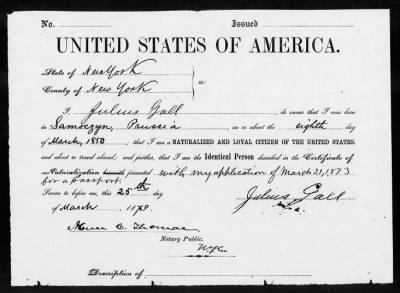 No. Issued
UNITED STATES OF AMERICA.
State of New York
County of New York ss:
I Julius Gall do swear that I was born
in Samoczyn, Prussia on or about the eighth day
of March, 1850; that I am a NATURALIZED AND LOYAL CITIZEN OF THE UNITED STATES,
and about to travel abroad; and further, that I am the Identical Person described in the Certificate of
Naturalization presented with my application of March 21, 1873
for a passport.
Sworn to before me, this 25th
Julius Gall
of March 1879.
C. Thomas
Notary Public.
NYC
Description of